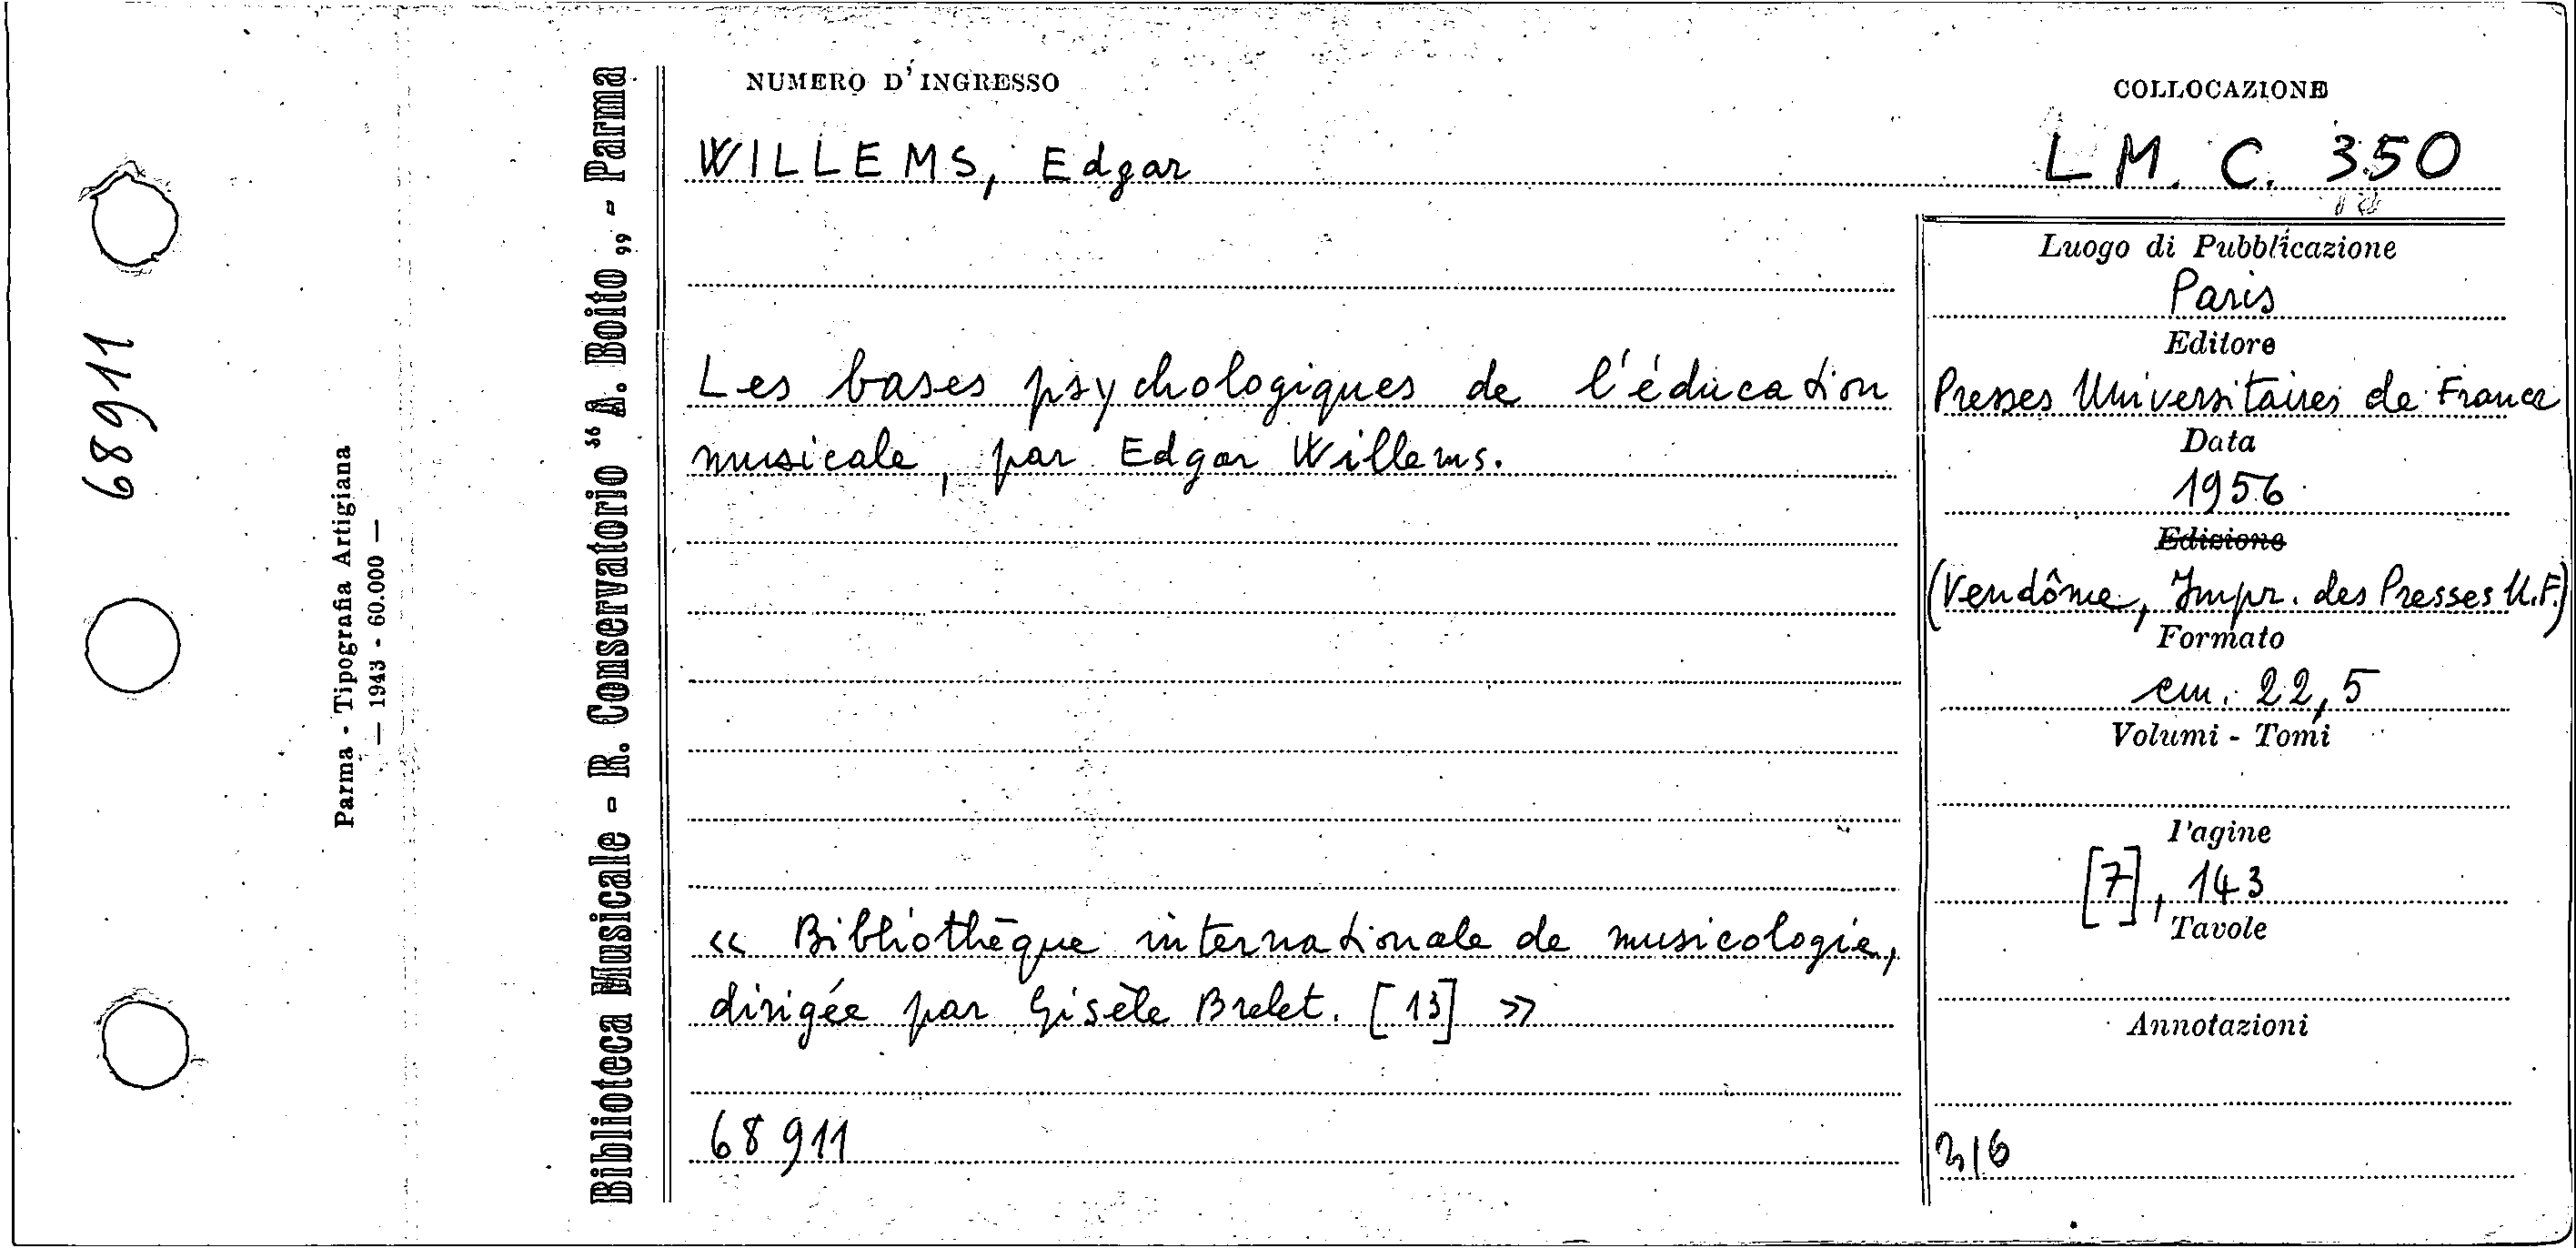 68911
Parma - Tipografia Artigiana
— 1943 - 60.000 —
Biblioteca Musicale - R. Conservatorio “A. Boito„ - Parma
NUMERO D'INGRESSO
COLLOCAZIONE
WILLEMS, Edgar
L M. C. 350
Les bases psychologiques de l'éducation
musicale, par Edgar Willems.
« Bibliothèque internationale de musicologie,
dirigée par Gisèle Brelet. [13] »
68911
Luogo di Pubblicazione
Paris
Editore
Presses Universitaires de France
Data
1956
Edizione
(Vendôme, Impr. des Presses U.F.)
Formato
cm. 22,5
Volumi - Tomi
Pagine
[7], 143
Tavole
Annotazioni